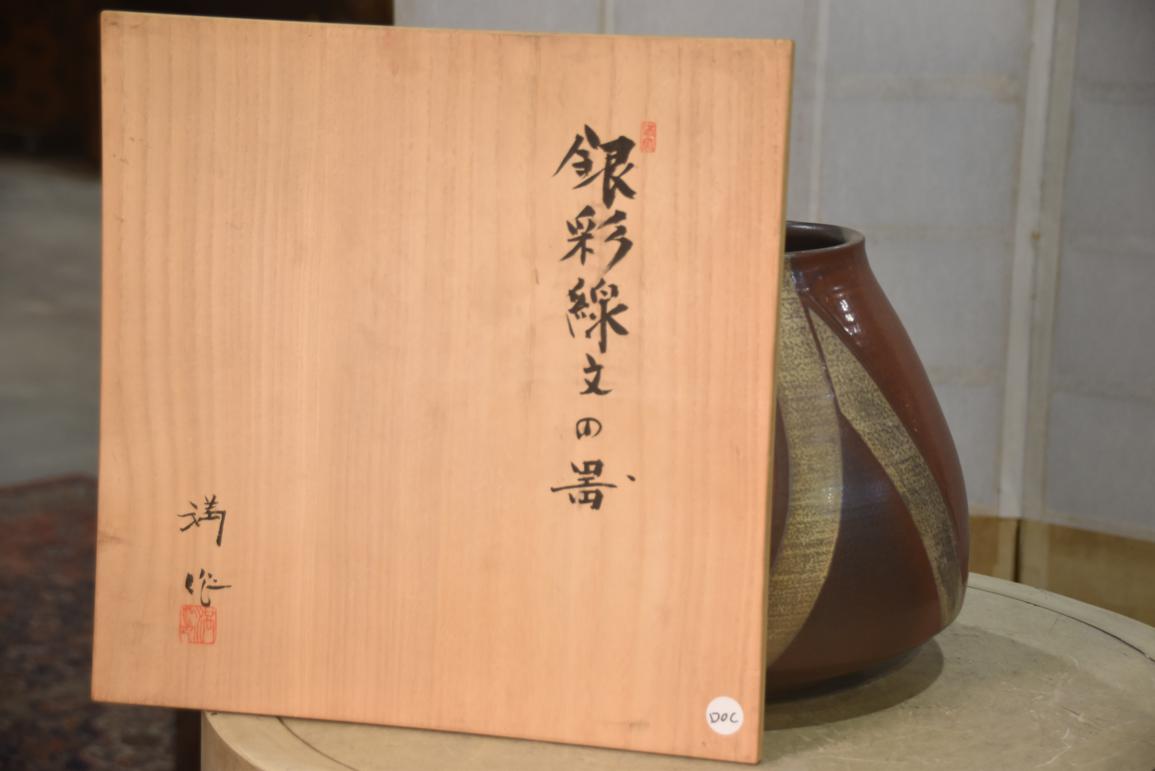 銀彩線文の器
満作
DOC